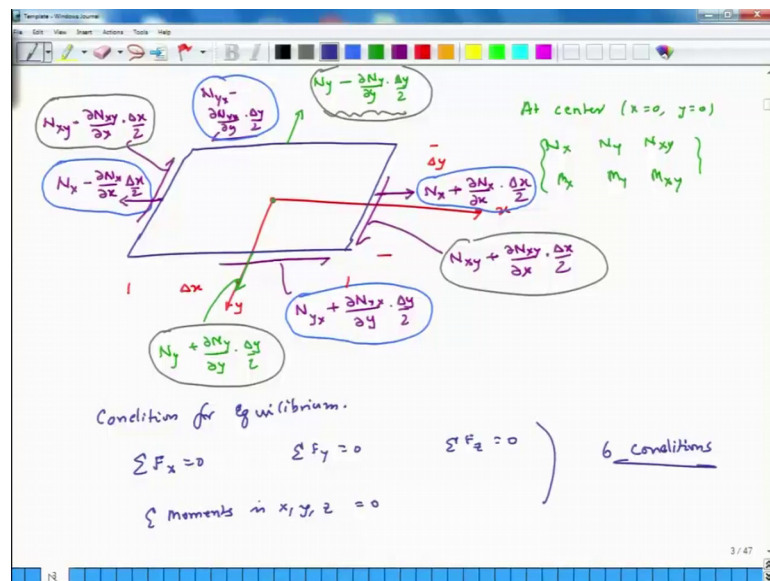 Template - Windows Journal
File Edit View Insert Actions Tools Help
B I
N_yx - ∂N_yx/∂y · Δy/2
N_y - ∂N_y/∂y · Δy/2
N_xy - ∂N_xy/∂x · Δx/2
At center (x=0, y=0)
N_x N_y N_xy
M_x M_y M_xy
Δy
N_x - ∂N_x/∂x Δx/2
N_x + ∂N_x/∂x · Δx/2
x
N_xy + ∂N_xy/∂x · Δx/2
Δx
y
N_yx + ∂N_yx/∂y · Δy/2
N_y + ∂N_y/∂y · Δy/2
Condition for equilibrium.
Σ F_x = 0 Σ F_y = 0 Σ F_z = 0
6 conditions
Σ moments in x, y, z = 0
3 / 47